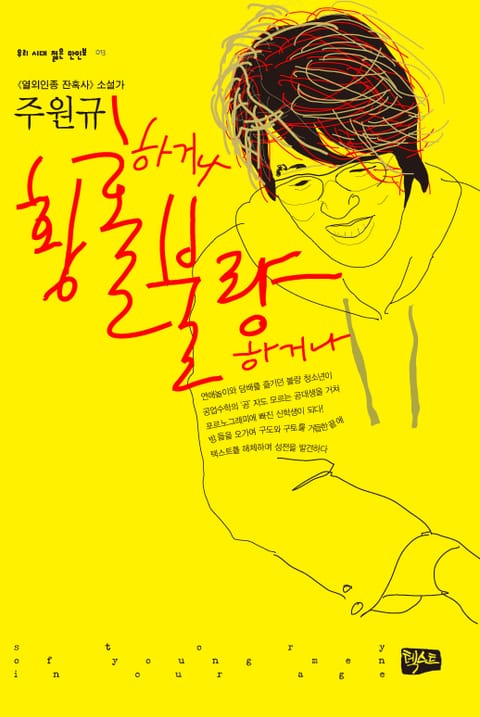 우리 시대 젊은 만인보 013
《열외인종 잔혹사》 소설가
주원규
황홀하거나
불량하거나
연애놀이와 담배를 즐기던 불량 청소년이
공업수학의 ‘공’ 자도 모르는 공대생을 거쳐
포르노그래피에 빠진 신학생이 되다!
방, 들을 오가며 구도와 구토를 거듭한 끝에
텍스트를 해체하며 성전을 발견하다
s t o r y
of young men
in our age
텍스트